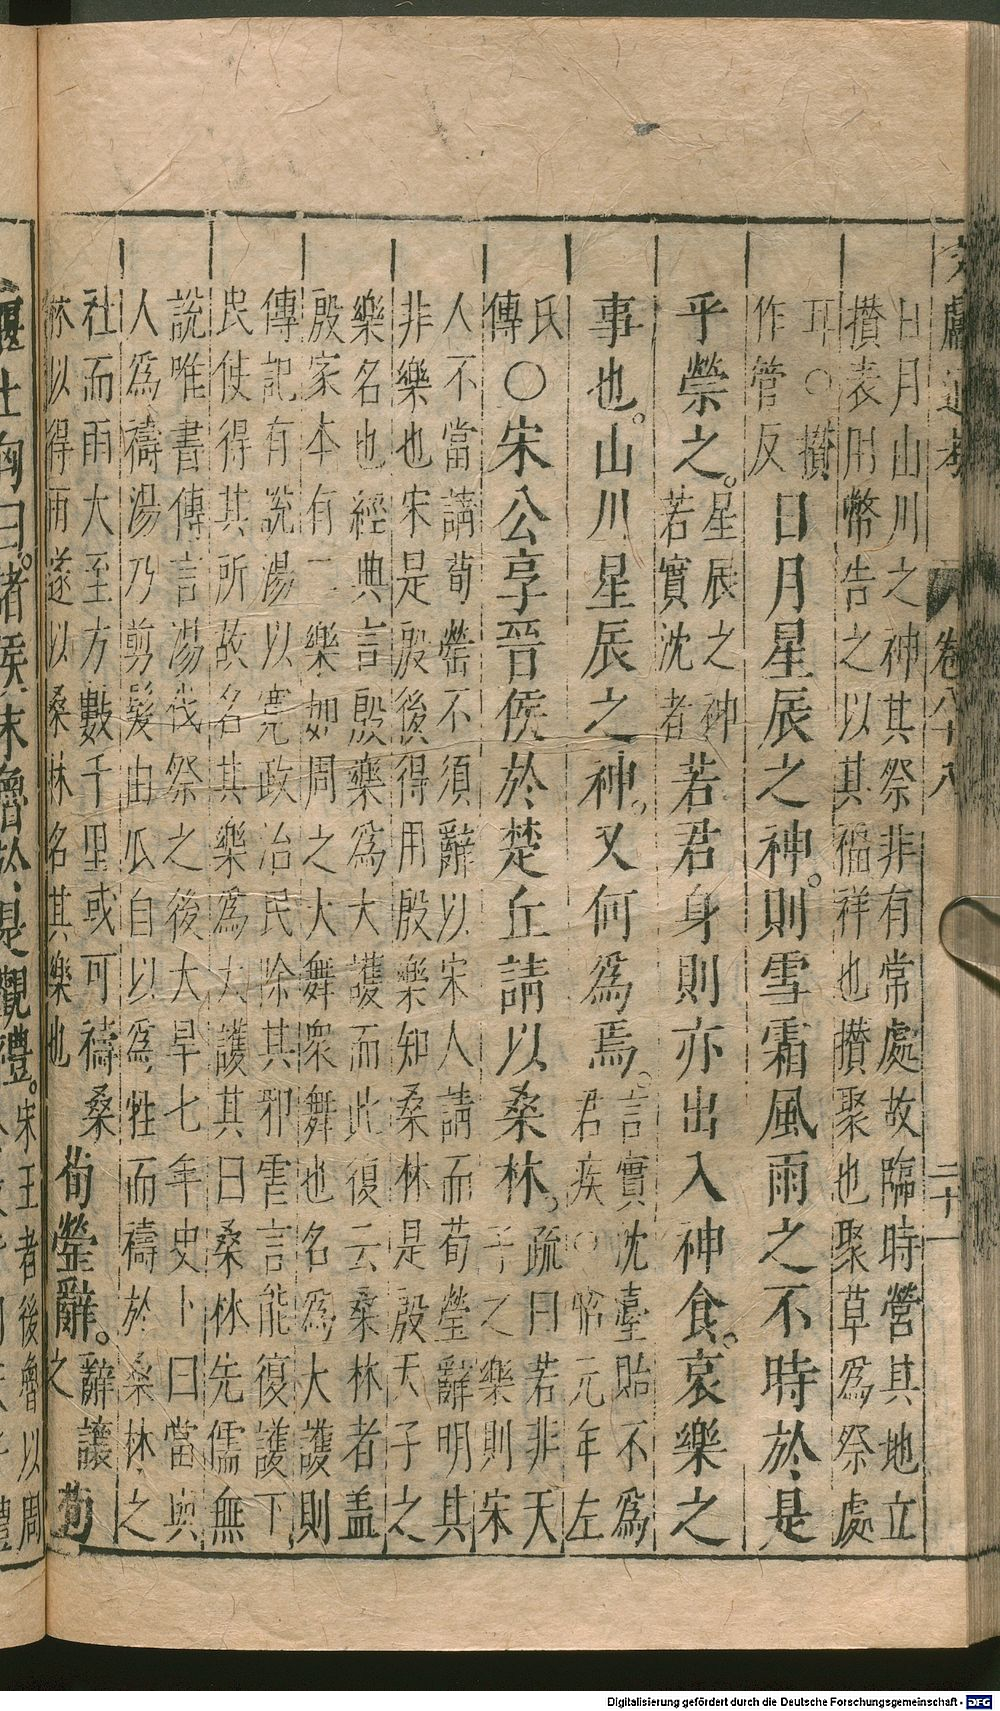 文獻通考 卷八十八 二十一
日月山川之神其祭非有常處故臨時營其地立
攅表用幣告之以其福祥也攅聚也聚草爲祭處
耳○攅
作管反
日月星辰之神。則雪霜風雨之不時於是
乎禜之。
星辰之神
若實沈者
若君身則亦出入神食。哀樂之
事也。山川星辰之神。又何爲焉。
言實沈臺貽不爲
君疾○昭元年左
氏
傳
○宋公享晉侯於楚丘請以桑林。
疏曰若非天
子之樂則宋
人不當請荀罃不須辭以宋人請而荀罃辭明其
非樂也宋是殷後得用殷樂知桑林是殷天子之
樂名也經典言殷樂爲大護而此復云桑林者盖
殷家本有二樂如周之大舞衆舞也名爲大護則
傳記有說湯以寬政治民除其邪虐言能復護下
民使得其所故名其樂爲大護其曰桑林先儒無
說唯書傳言湯伐祭之後大旱七年史卜曰當與
人爲禱湯乃剪髮由瓜自以爲牲而禱於桑林之
社而雨大至方數千里或可禱桑
林以得雨遂以桑林名其樂也
荀罃辭。
辭讓
之
荀
偃士匃曰。諸侯宋魯於是觀禮。
宋王者後魯以周
Digitalisierung gefördert durch die Deutsche Forschungsgemeinschaft - DFG